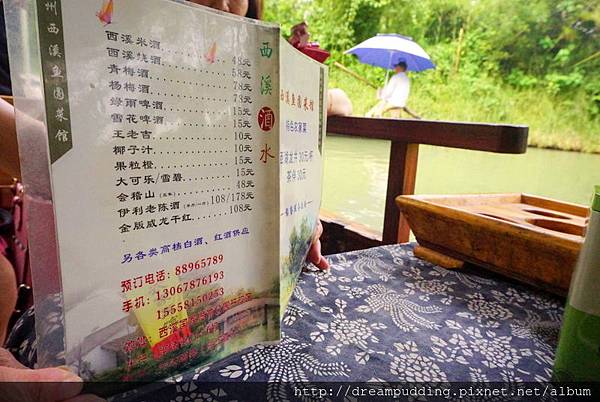 州西溪鱼圆菜馆
西溪酒水
西溪米酒 48元
西溪烧酒 58元
青梅酒 78元
杨梅酒 73元
绿雨啤酒 15元
雪花啤酒 15元
王老吉 10元
椰子汁 10元
果粒橙 15元
大可乐/雪碧 15元
会稽山 48元
伊利老陈酒 108/178元
金版威龙干红 108元
另各类高档白酒、红酒供应
预订电话: 88965789
手机: 13067876193
15558150253
西溪鱼圆菜馆
特色农家菜
龙井 30元/杯
茶伴30元
http://dreampudding.pixnet.net/album